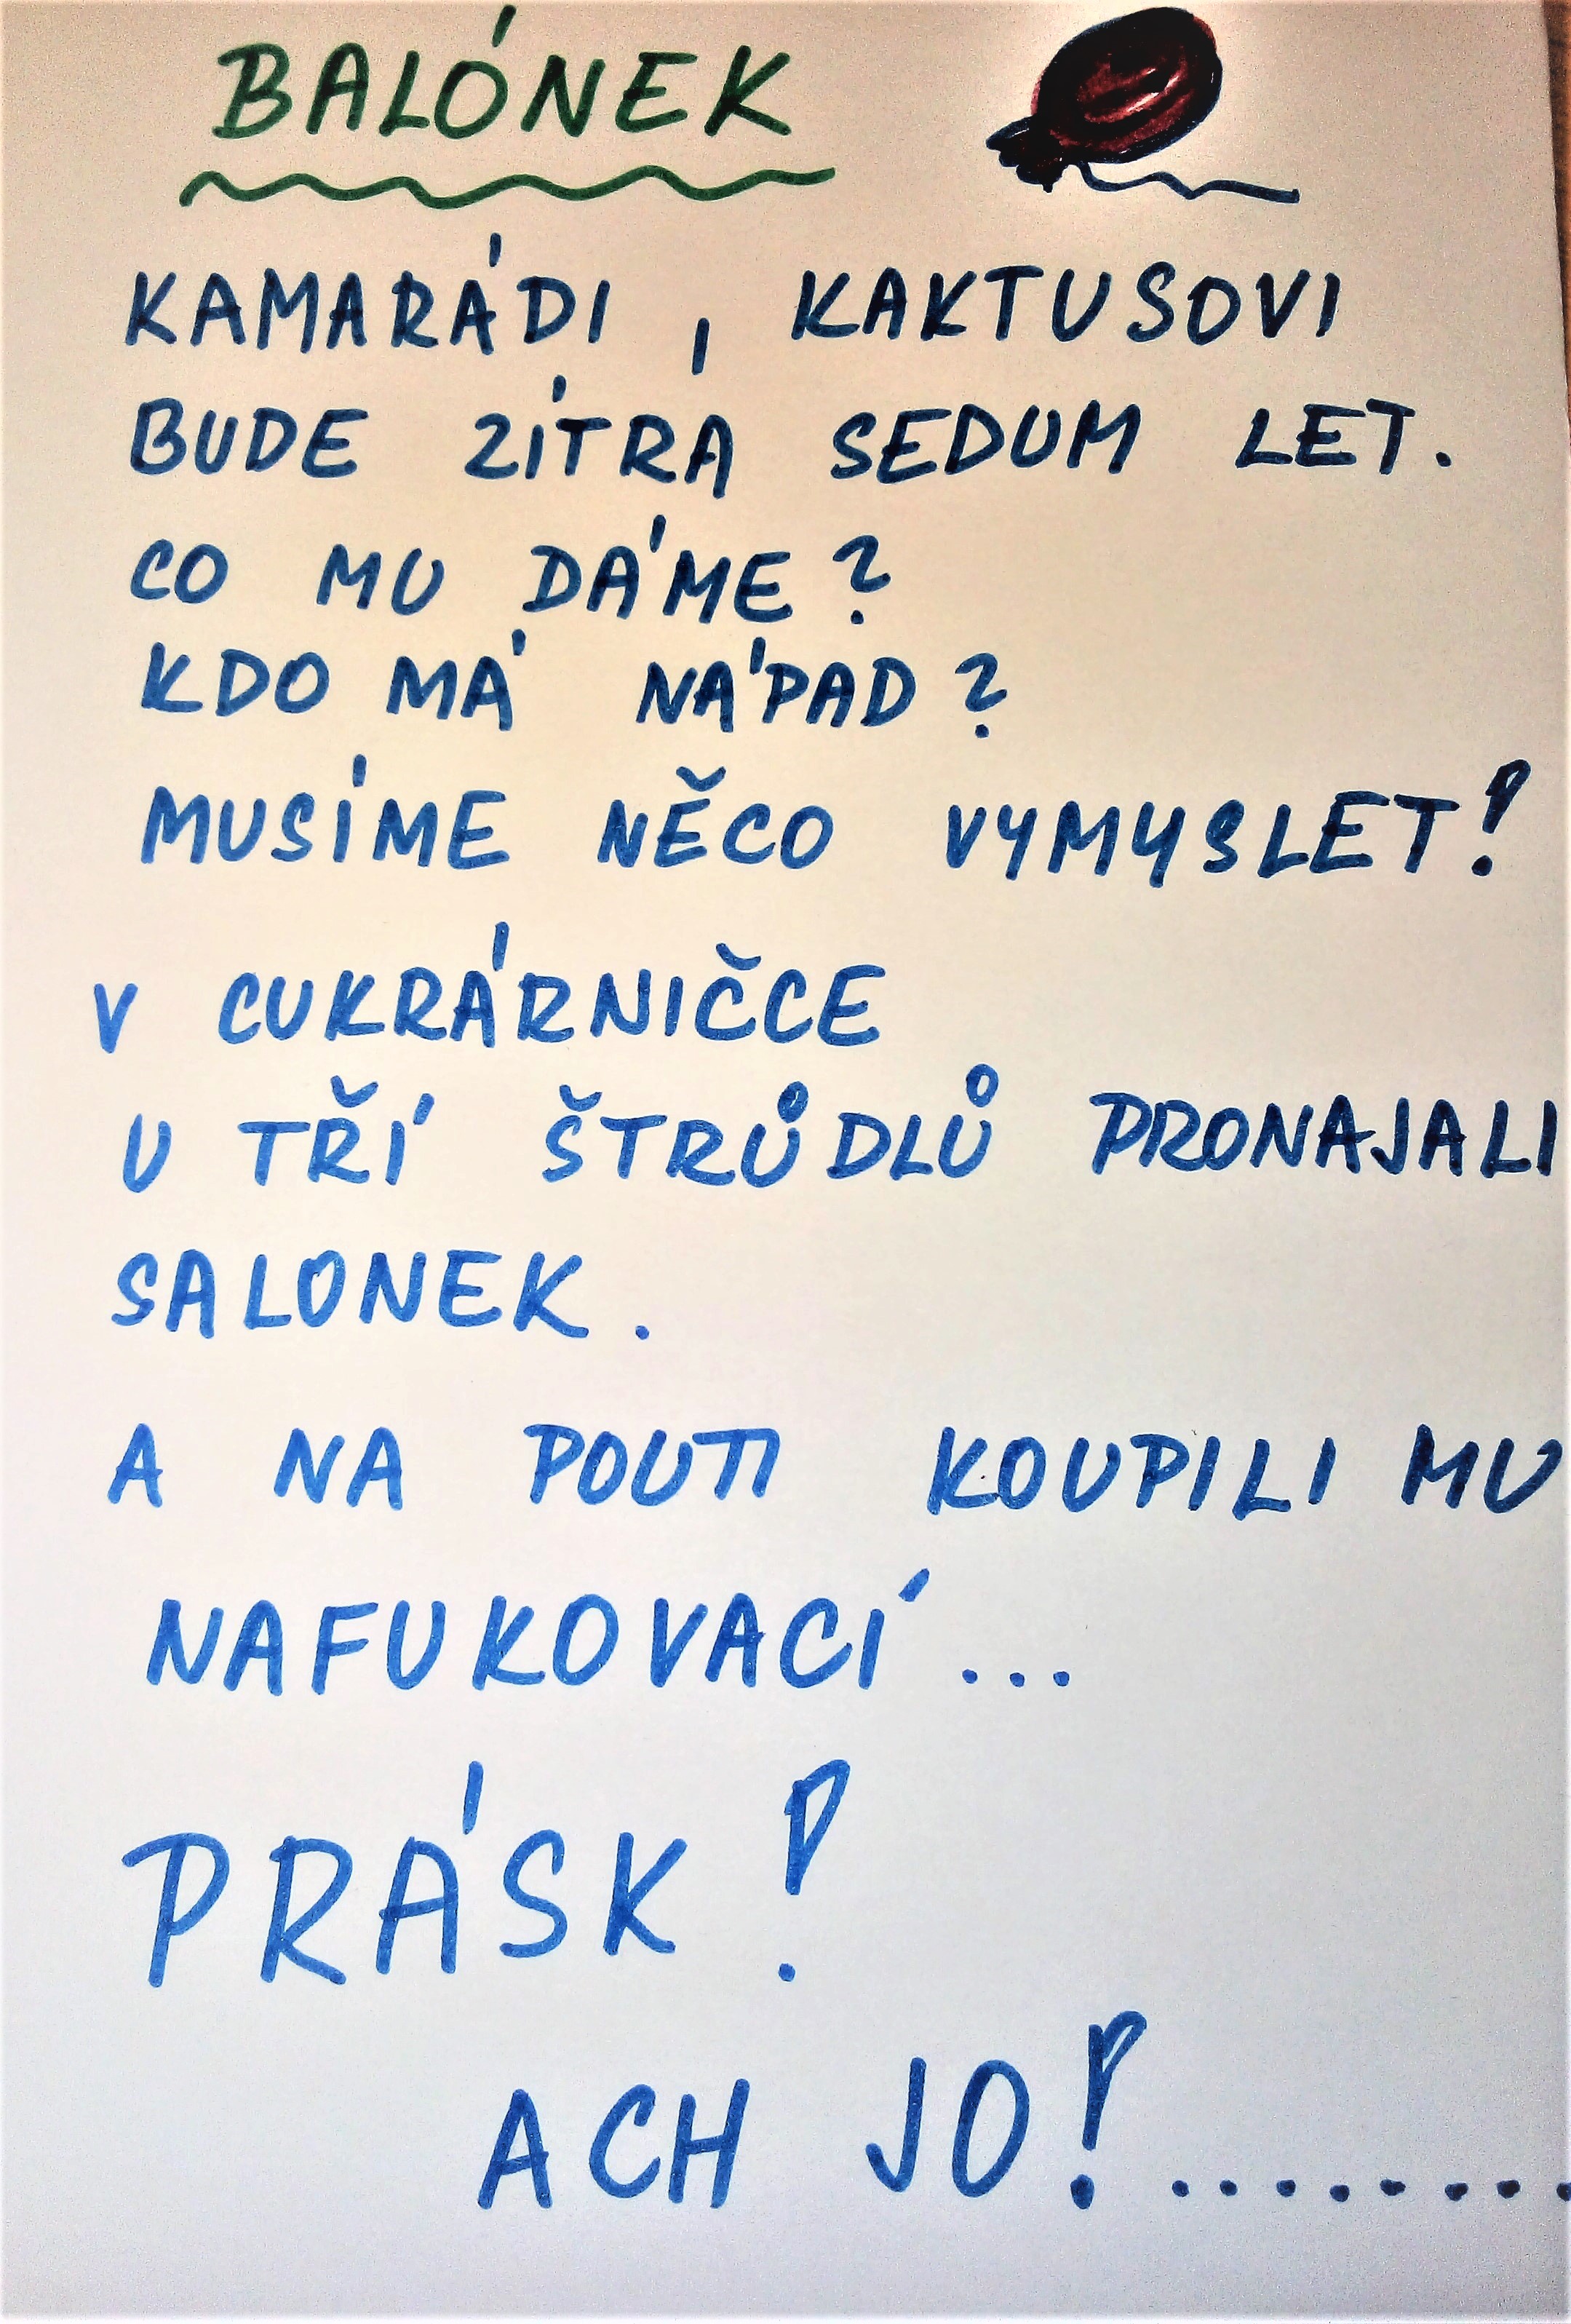 BALÓNEK
KAMARÁDI, KAKTUSOVI
BUDE ZÍTRA SEDUM LET.
CO MU DÁME?
KDO MÁ NÁPAD?
MUSÍME NĚCO VYMYSLET!
V CUKRÁRNIČCE
U TŘÍ ŠTRŮDLŮ PRONAJALI
SALONEK.
A NA POUTI KOUPILI MU
NAFUKOVACÍ...
PRÁSK!
ACH JO!........